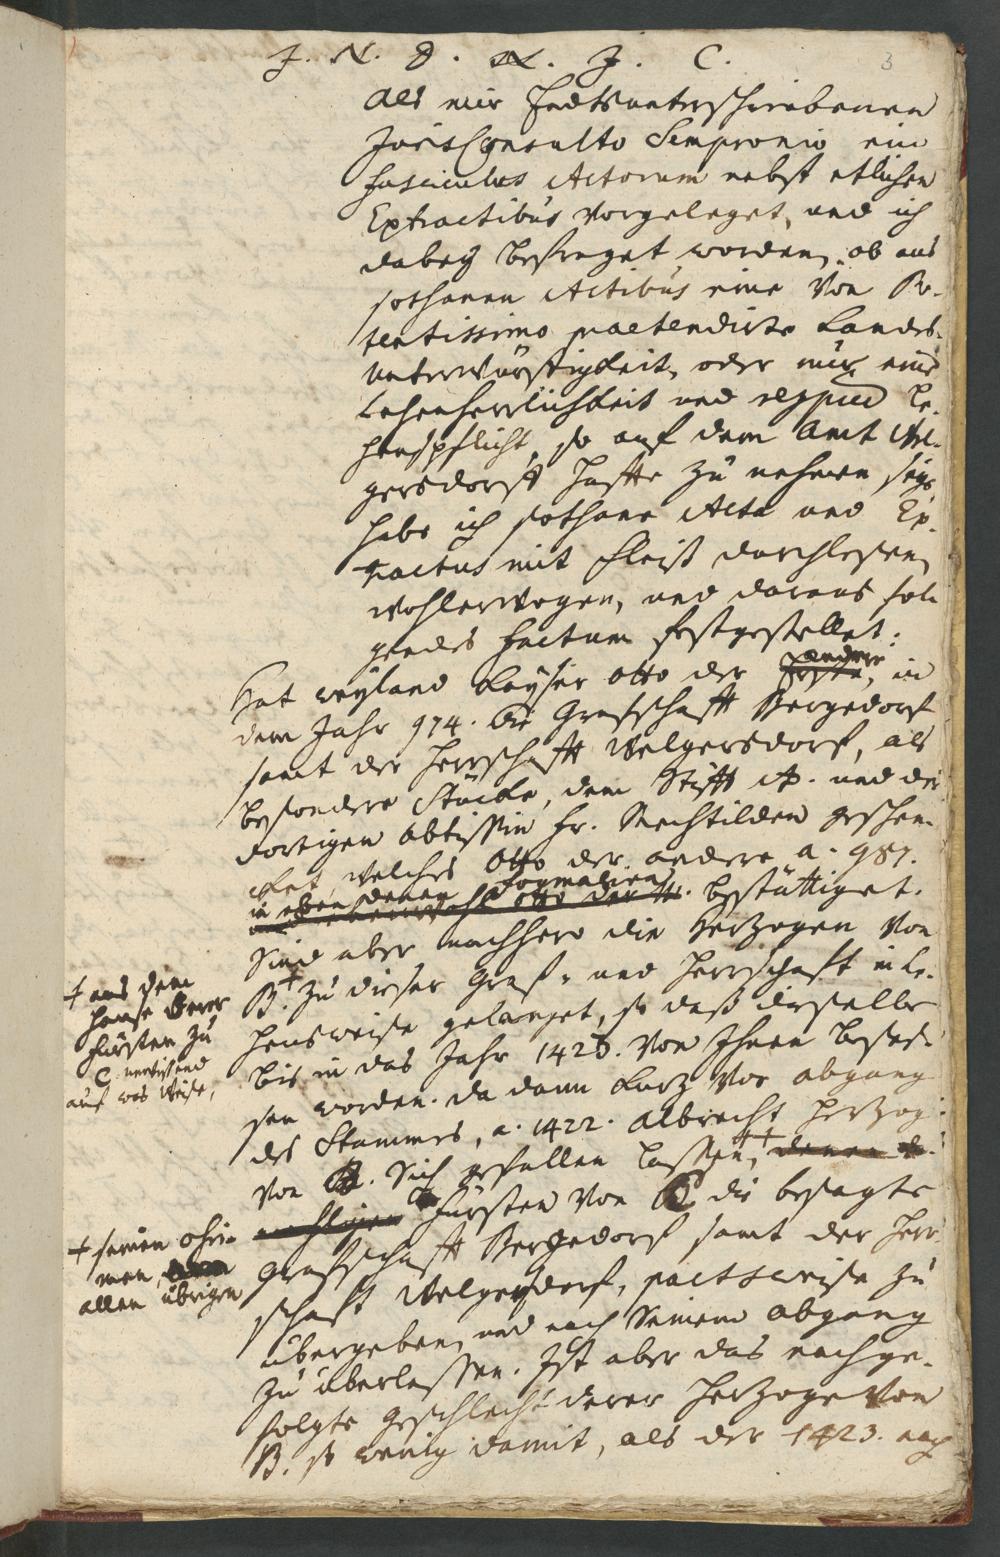 J. N. D. N. J. C.
3
Als mir Endtsunterschriebenen
JurisConsulto Sempronio ein
fasciculus Actorum nebst etlichen
Extractibus vorgeleget, und ich
dabey befraget worden, ob aus
sothanen Actibus eine von Po-
tentissimo praetendirte Landes-
unterwürffigkeit, oder nur eine
Lehenherrlichkeit und Le-
henspflicht, so auf dem Amt Wel-
gersdorff haffte zu nehmen seye
habe ich sothane Acta und Ex-
tractus mit Fleiß durchlesen,
wohlerwogen, und daraus fol-
gendes Factum festgestellet:
Hat weyland Kayser Otto der andere, in
dem Jahr 974. die Graffschafft Bergedorf
samt der Herrschafft Welgersdorf, als
besondere Stücke, dem Stifft A. und der
dortigen Abtissin Fr. Mechtilden geschen-
cket, welches Otto der andere a. 987.
in eben denen Formalien bestättiget.
Sind aber nachhero die Herzogen von
B. + zu dieser Graf- und Herrschafft in Le-
hensweise gelanget, so daß dieselbe
bis in das Jahr 1423. von Ihnen beses-
sen worden. da dann kurz vor abgang
des Stammes, a. 1422. Albrecht Herzog
von B. Sich gefallen lassen, ++
Fürsten von C. die besagte
Graffschafft Bergedorf samt der Herr-
schafft Welgersdorf, pactsweise zu
übergeben, und nach Seinem abgang
zu überlassen. Ist aber das nachge-
folgte Geschlecht derer Herzoge von
B. so wenig damit, als der 1423. nach
+ aus dem
Hause derer
Fürsten zu
C. unwissend
auf was Weise,
+ seinen Ohei-
men,
allen übrigen